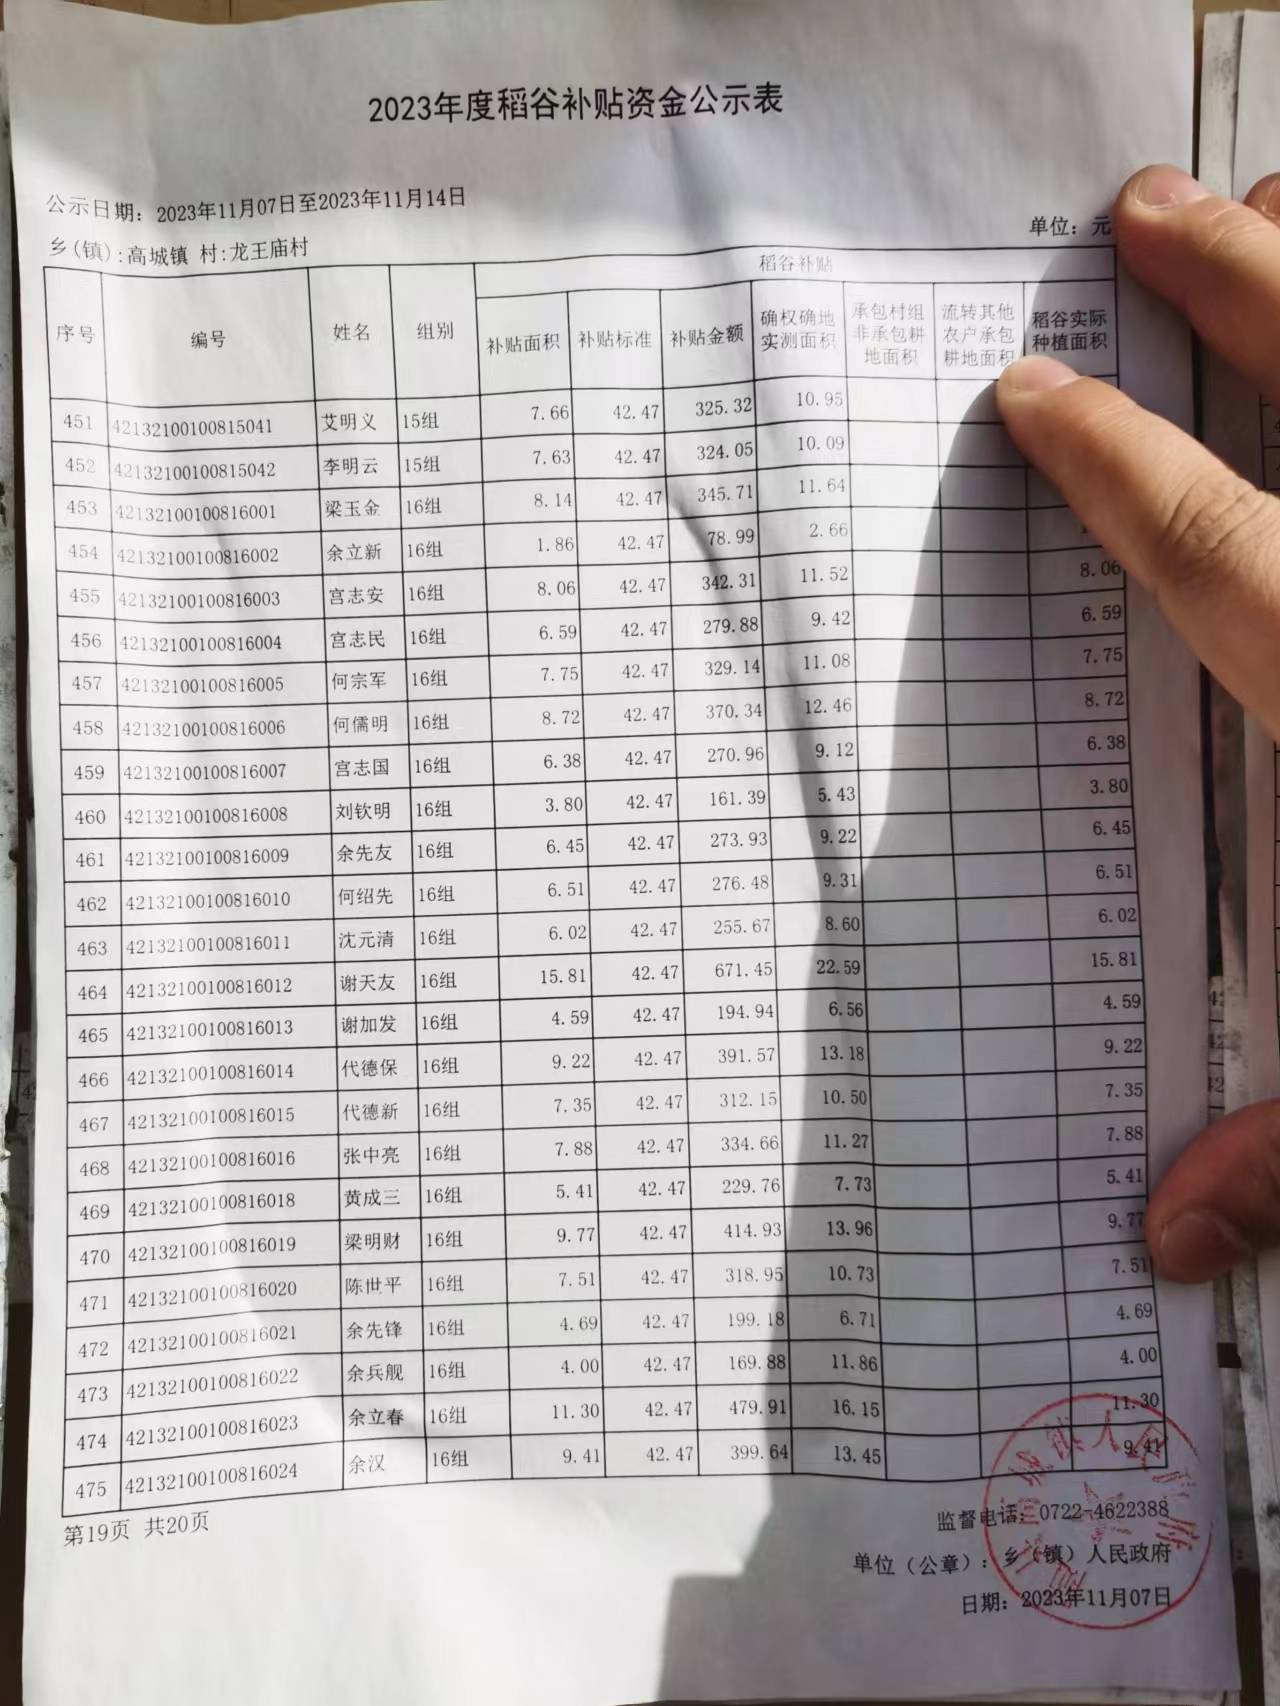 2023年度稻谷补贴资金公示表
公示日期: 2023年11月07日至2023年11月14日
单位: 元
乡(镇):高城镇 村:龙王庙村
序号 编号 姓名 组别 稻谷补贴
补贴面积 补贴标准 补贴金额 确权确地实测面积 承包村组非承包耕地面积 流转其他农户承包耕地面积 稻谷实际种植面积
451 42132100100815041 艾明义 15组 7.66 42.47 325.32 10.95
452 42132100100815042 李明云 15组 7.63 42.47 324.05 10.09
453 42132100100816001 梁玉金 16组 8.14 42.47 345.71 11.64
454 42132100100816002 余立新 16组 1.86 42.47 78.99 2.66
455 42132100100816003 宫志安 16组 8.06 42.47 342.31 11.52 8.06
456 42132100100816004 宫志民 16组 6.59 42.47 279.88 9.42 6.59
457 42132100100816005 何宗军 16组 7.75 42.47 329.14 11.08 7.75
458 42132100100816006 何儒明 16组 8.72 42.47 370.34 12.46 8.72
459 42132100100816007 宫志国 16组 6.38 42.47 270.96 9.12 6.38
460 42132100100816008 刘钦明 16组 3.80 42.47 161.39 5.43 3.80
461 42132100100816009 余先友 16组 6.45 42.47 273.93 9.22 6.45
462 42132100100816010 何绍先 16组 6.51 42.47 276.48 9.31 6.51
463 42132100100816011 沈元清 16组 6.02 42.47 255.67 8.60 6.02
464 42132100100816012 谢天友 16组 15.81 42.47 671.45 22.59 15.81
465 42132100100816013 谢加发 16组 4.59 42.47 194.94 6.56 4.59
466 42132100100816014 代德保 16组 9.22 42.47 391.57 13.18 9.22
467 42132100100816015 代德新 16组 7.35 42.47 312.15 10.50 7.35
468 42132100100816016 张中亮 16组 7.88 42.47 334.66 11.27 7.88
469 42132100100816018 黄成三 16组 5.41 42.47 229.76 7.73 5.41
470 42132100100816019 梁明财 16组 9.77 42.47 414.93 13.96 9.77
471 42132100100816020 陈世平 16组 7.51 42.47 318.95 10.73 7.51
472 42132100100816021 余先锋 16组 4.69 42.47 199.18 6.71 4.69
473 42132100100816022 余兵舰 16组 4.00 42.47 169.88 11.86 4.00
474 42132100100816023 余立春 16组 11.30 42.47 479.91 16.15 11.30
475 42132100100816024 余汉 16组 9.41 42.47 399.64 13.45 9.41
第19页 共20页
监督电话: 0722-4622388
单位（公章）: 乡（镇）人民政府
日期: 2023年11月07日